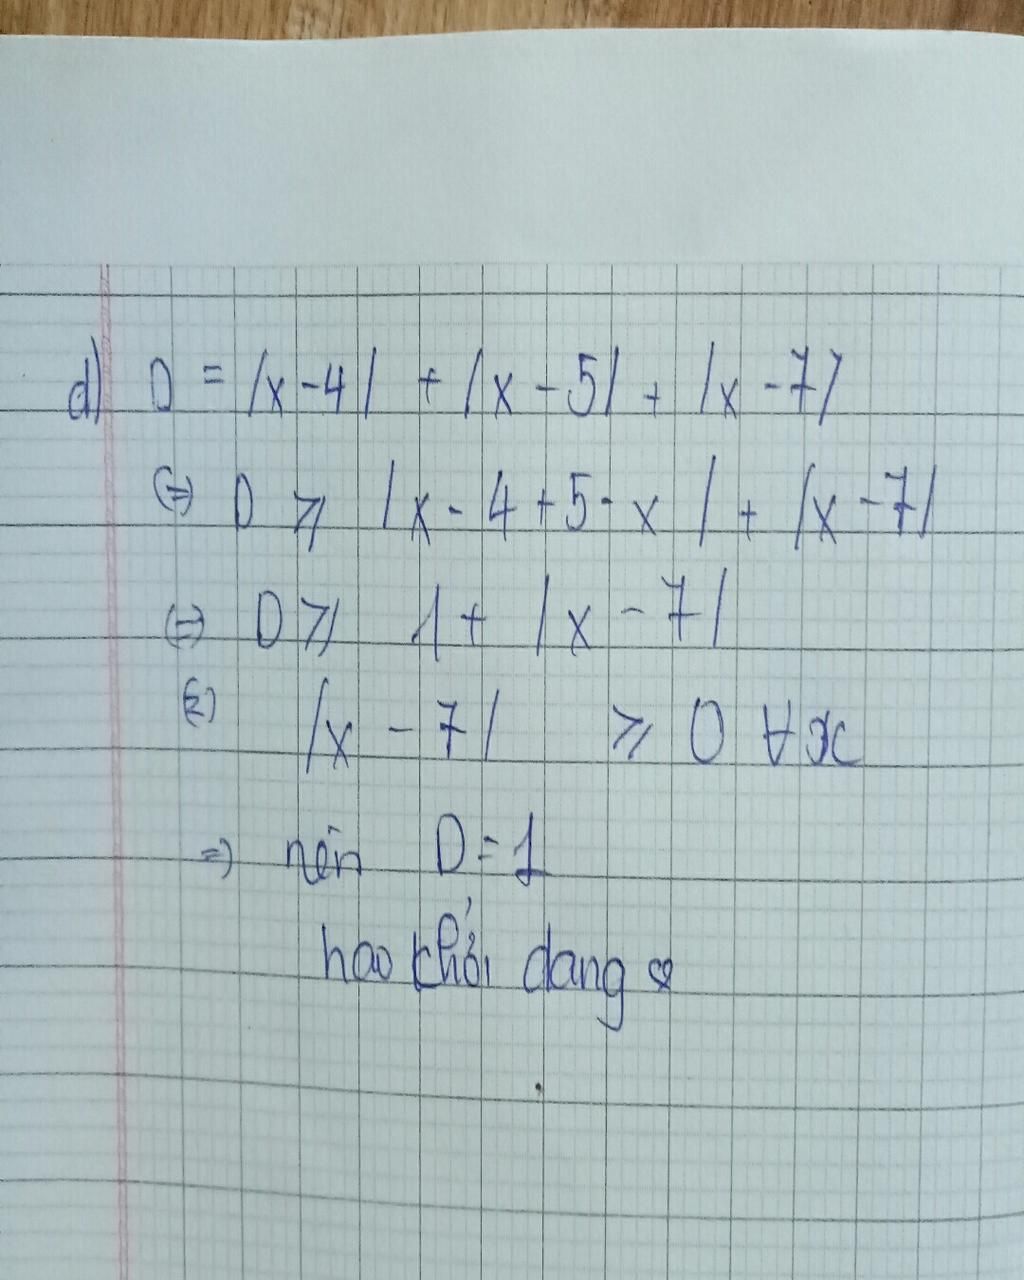 d) D = |x - 4| + |x - 5| + |x - 7|
(=) D ≥ |x - 4 + 5 - x| + |x - 7|
(=) D ≥ 1 + |x - 7|
|x - 7| ≥ 0 ∀x
=) nên D = 1
dang